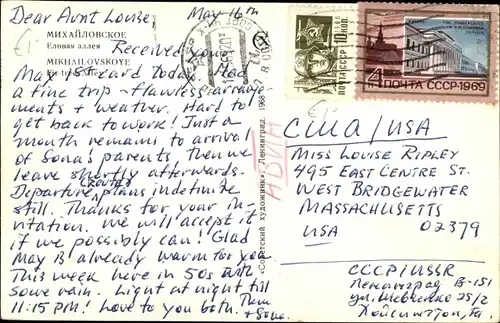 Dear Aunt Louise,
May 16th
МИХАЙЛОВСКОЕ
Еловая аллея
MIKHAILOVSKOYE
Received your
May 1st card today. Had
a fine trip - flawless arrange-
ments + weather. Hard to
get back to work! Just a
month remains to arrival
of Sona's parents. Then we
leave shortly afterwards.
Departure (route) plans indefinite
still. Thanks for your in-
vitation. We will accept it
if we possibly can! Glad
May 13 already warm for you.
This week here in 50s with
some rain. Light at night till
11:15 PM! Love to you both, Them
+ Sona.
«Советский художник». Ленинград. 1968
AВИА
ПОЧТА СССР
4 ПОЧТА СССР·1969
США/USA
MISS LOUISE RIPLEY
495 EAST CENTRE ST.
WEST BRIDGEWATER
MASSACHUSETTS
02379
USA
СССР/USSR
Ленинград В-151
ул. Шевченко 25/2